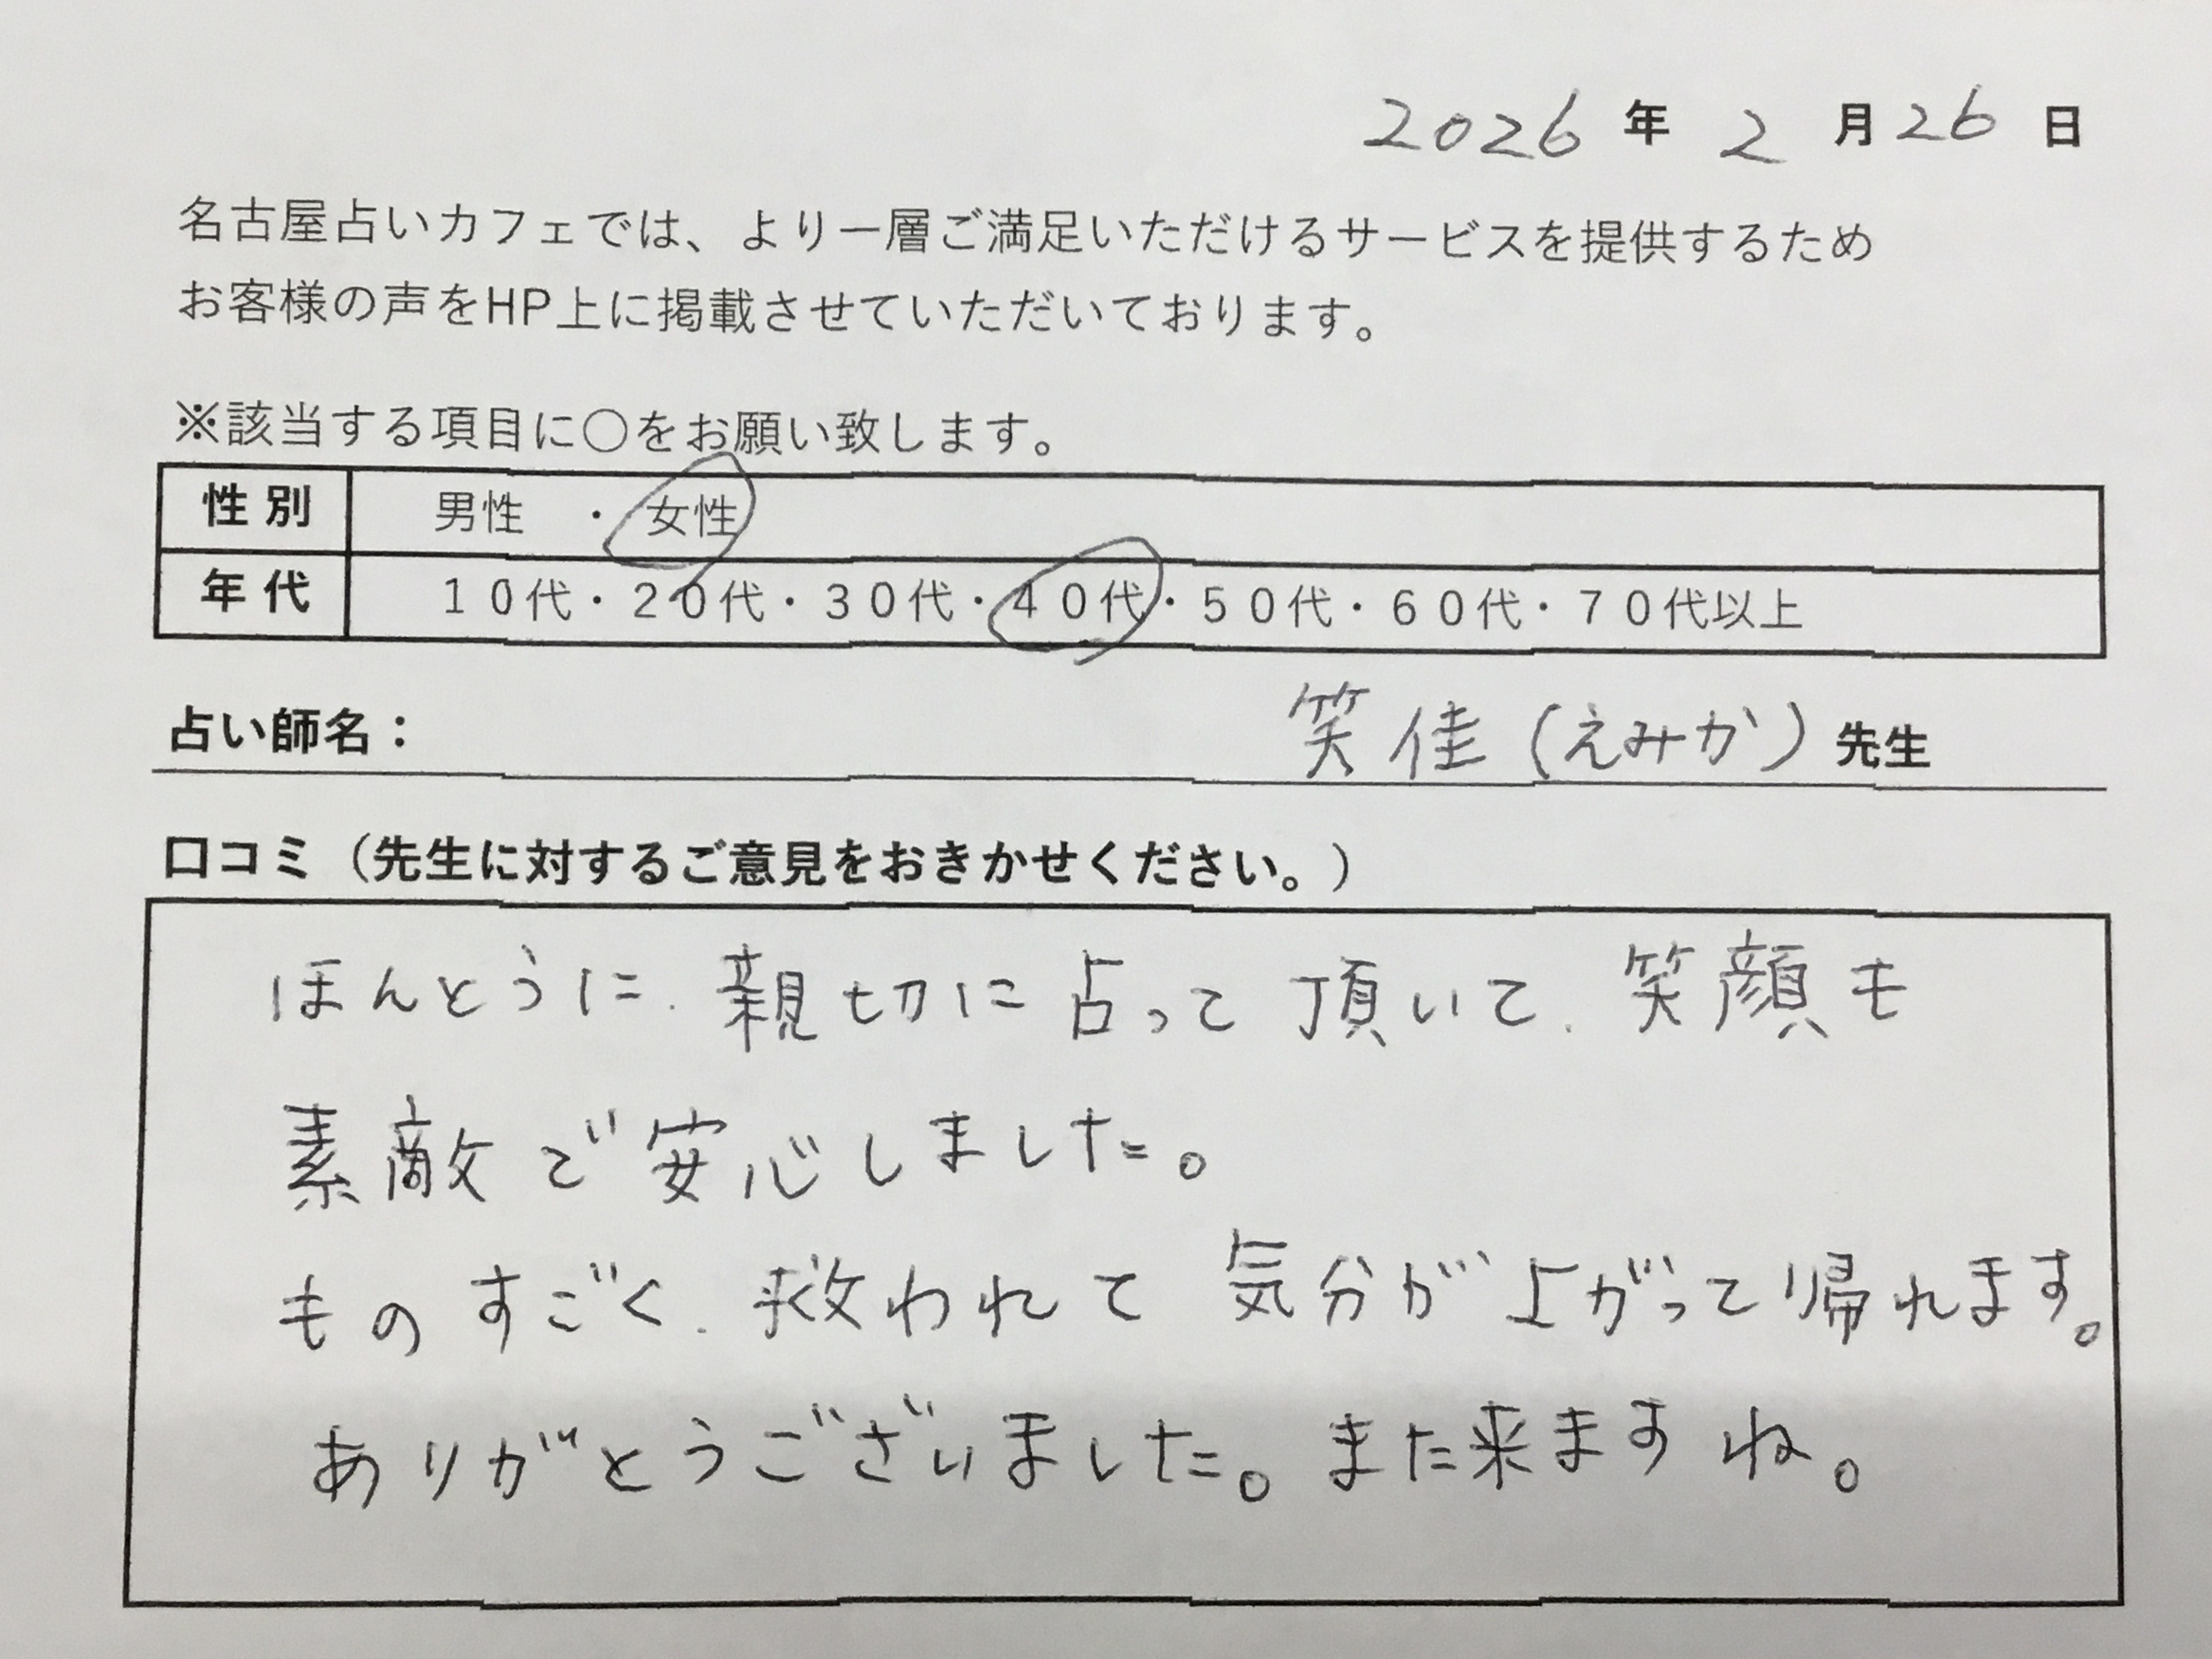 2026 年 2 月 26 日
名古屋占いカフェでは、より一層ご満足いただけるサービスを提供するため
お客様の声をHP上に掲載させていただいております。
※該当する項目に〇をお願い致します。
性別 男性 ・ 女性
年代 10代・20代・30代・40代・50代・60代・70代以上
占い師名： 笑佳（えみか）先生
口コミ（先生に対するご意見をおきかせください。）
ほんとうに、親切に占って頂いて、笑顔も
素敵で安心しました。
ものすごく、救われて気分が上がって帰れます。
ありがとうございました。また来ますね。